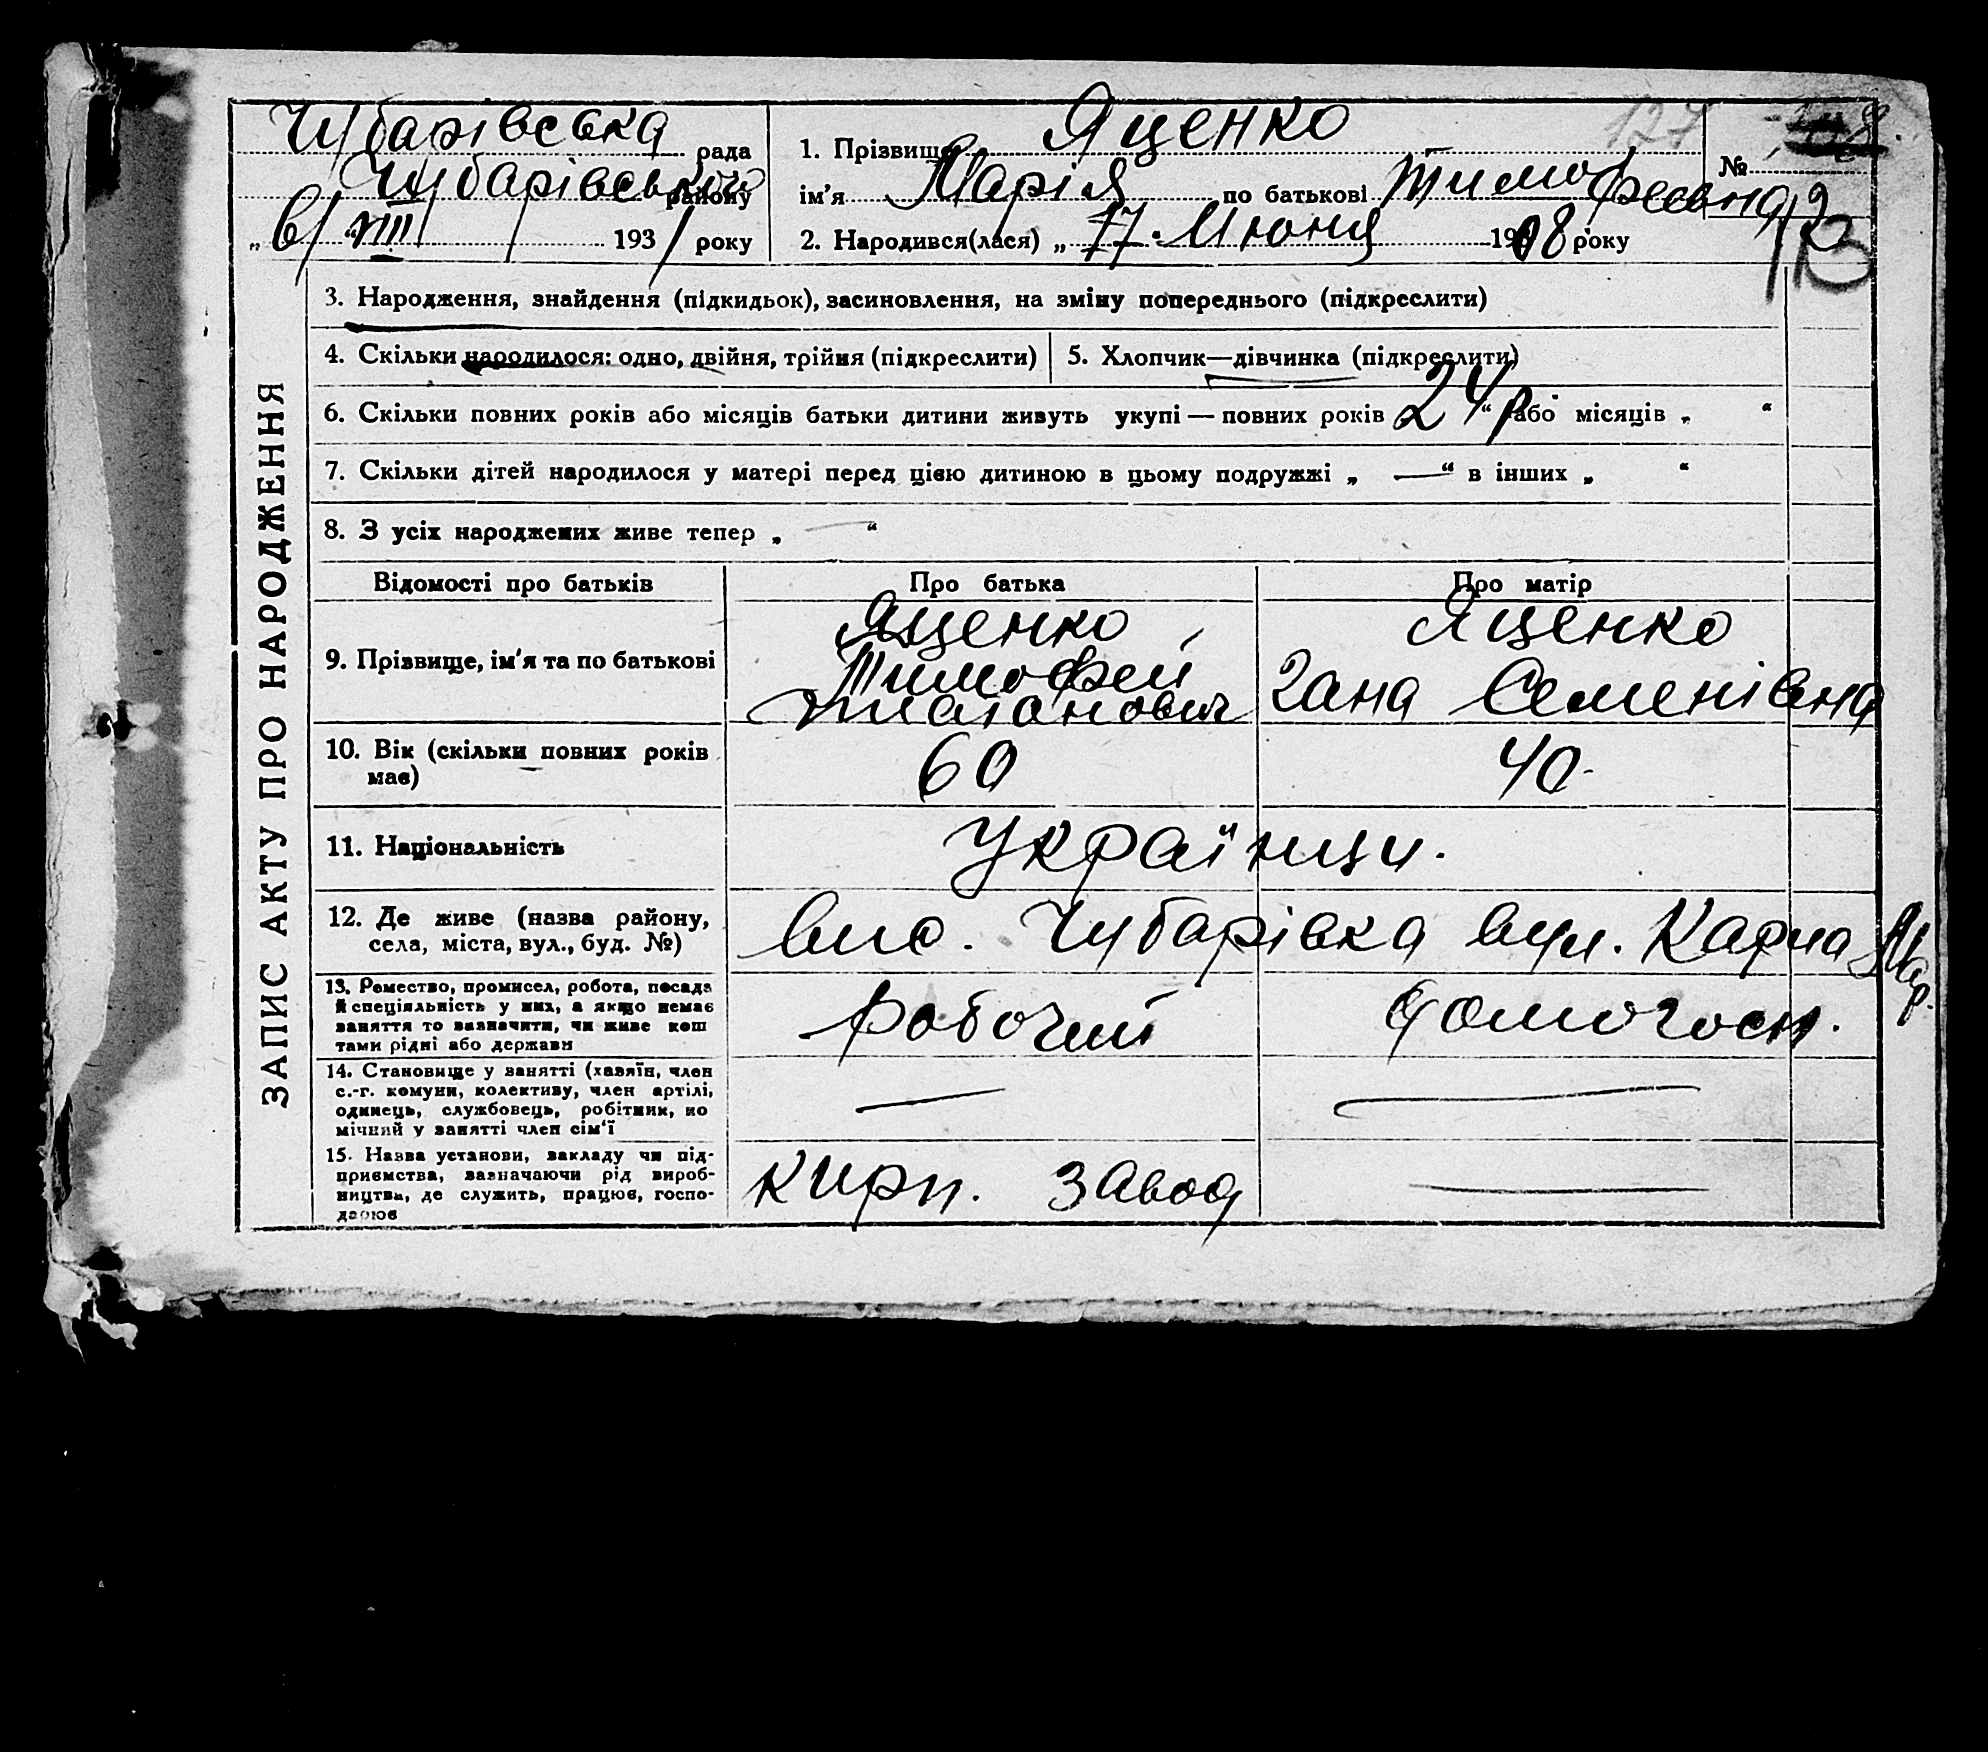 ЗАПИС АКТУ ПРО НАРОДЖЕННЯ
Чубарівська рада
Чубарівського району
„6/“ VIII 1931 року
1. Прізвище Яценко 127
ім'я Марія по батькові Тимофеевна
2. Народився(лася) „17. Июня 1908 року
№
3. Народження, знайдення (підкидьок), засиновлення, на зміну попереднього (підкреслити)
4. Скільки народилося: одно, двійня, трійня (підкреслити)
5. Хлопчик—дівчинка (підкреслити)
6. Скільки повних років або місяців батьки дитини живуть укупі — повних років 24 р “ або місяців „ “
7. Скільки дітей народилося у матері перед цією дитиною в цьому подружжі „ — “ в інших „ “
8. З усіх народжених живе тепер „ — “
Відомості про батьків Про батька Про матір
9. Прізвище, ім'я та по батькові
Яценко Тимофей
Яценко
Гана Семенівна
10. Вік (скільки повних років має) 60 40.
11. Національність Українци.
12. Де живе (назва району, села, міста, вул., буд. №)
вис. Чубарівка вул. Карла Мар.
13. Ремество, промисел, робота, посада
й спеціяльність у них, а якщо немає
заняття то визначити, чи живе кош
тами рідні або держави
робочий домогосп.
14. Становище у занятті (хазяїн, член
с.-г. комуни, колективу, член артілі,
одинець, службовець, робітник, по
мічний у занятті член сім'ї
— —
15. Назва установи, закладу чи під-
приємства, зазначаючи рід вироб-
ництва, де служить, працює, госпо-
дарює
кирп. завод —